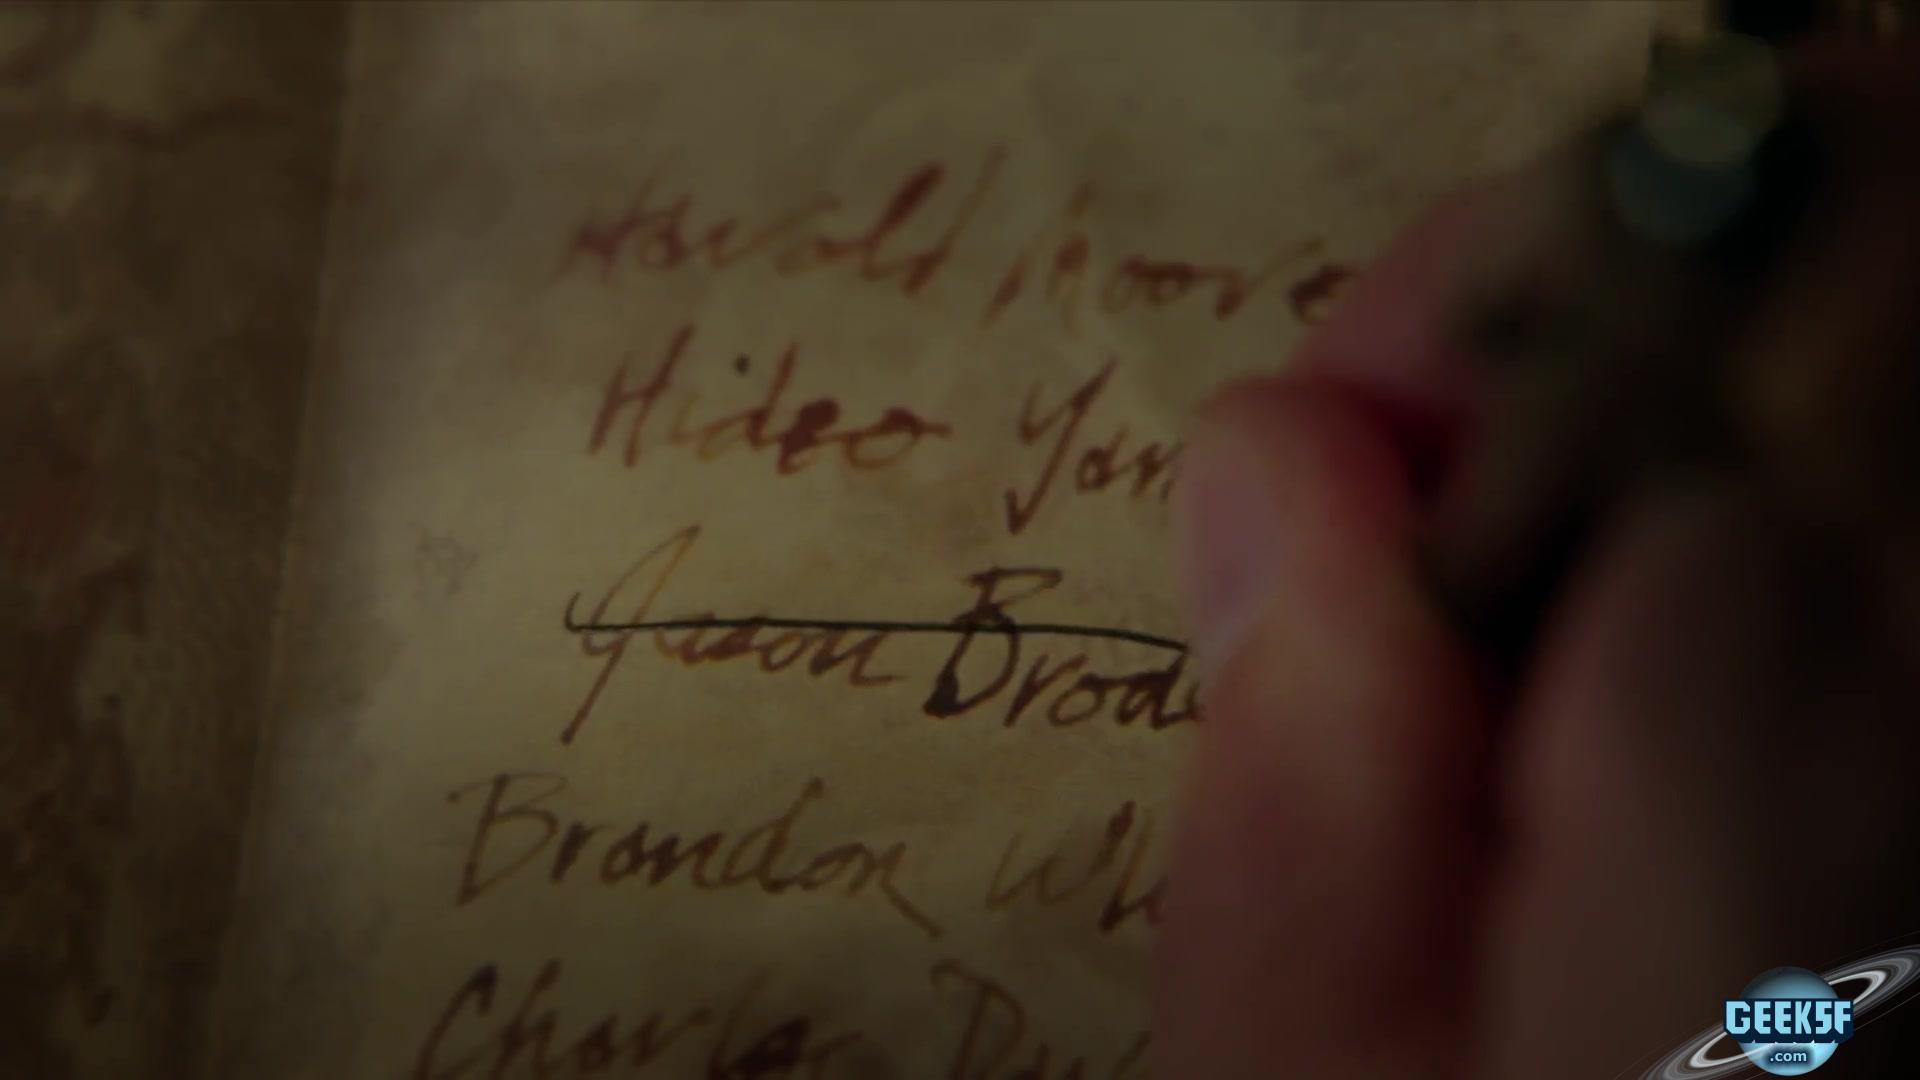 Harold Moore
Hideo Yam
Jason Brod
Brandon
Charles
GEEKSF
.com